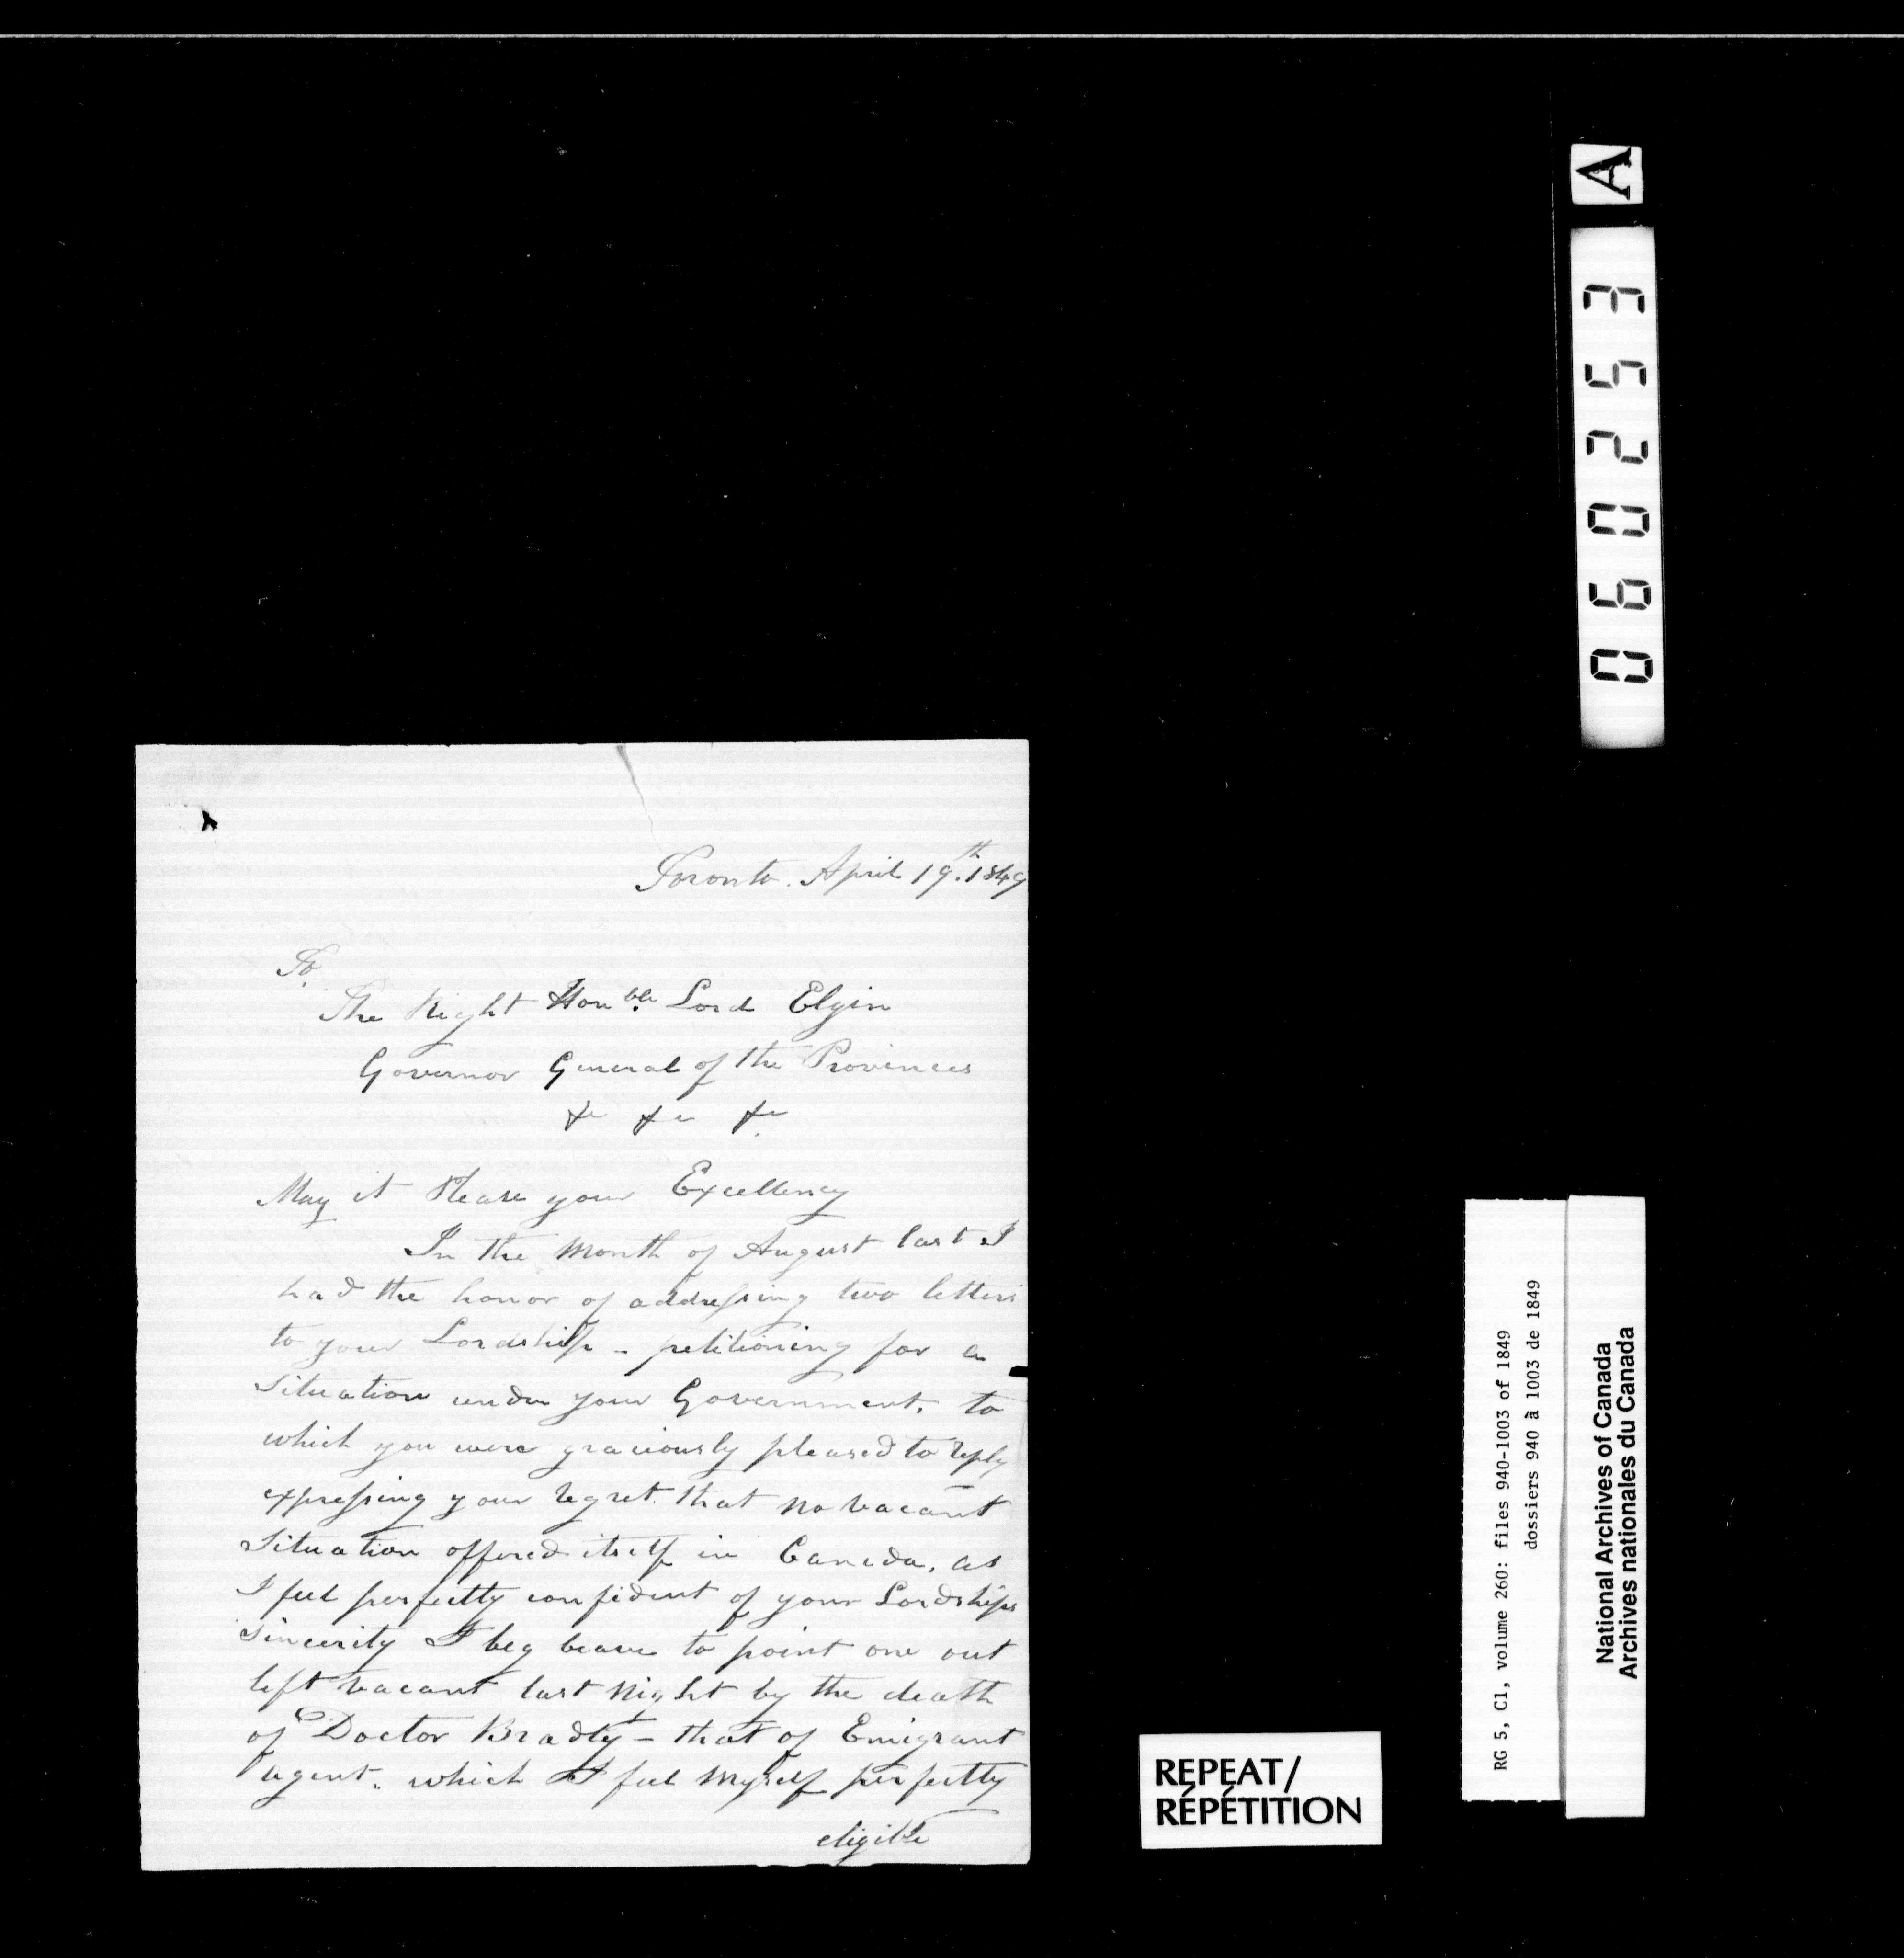 Toronto. April 19th. 1849
To,
The Right Honble. Lord Elgin
Governor General of the Provinces
&c &c &c
May it Please your Excellency
In the Month of August last I
had the honor of addressing two letters
to your Lordship - petitioning for a
situation under your Government, to
which you were graciously pleased to reply
expressing your regret that no vacant
situation offered itself in Canada, as
I feel perfectly confident of your Lordships
sincerity I beg leave to point one out
left vacant last Night by the death
of Doctor Bradly - that of Emigrant
agent. which I feel Myself perfectly
eligible
A
060253
RG 5, C1, volume 260: files 940-1003 of 1849
dossiers 940 à 1003 de 1849
National Archives of Canada
Archives nationales du Canada
REPEAT/
RÉPÉTITION